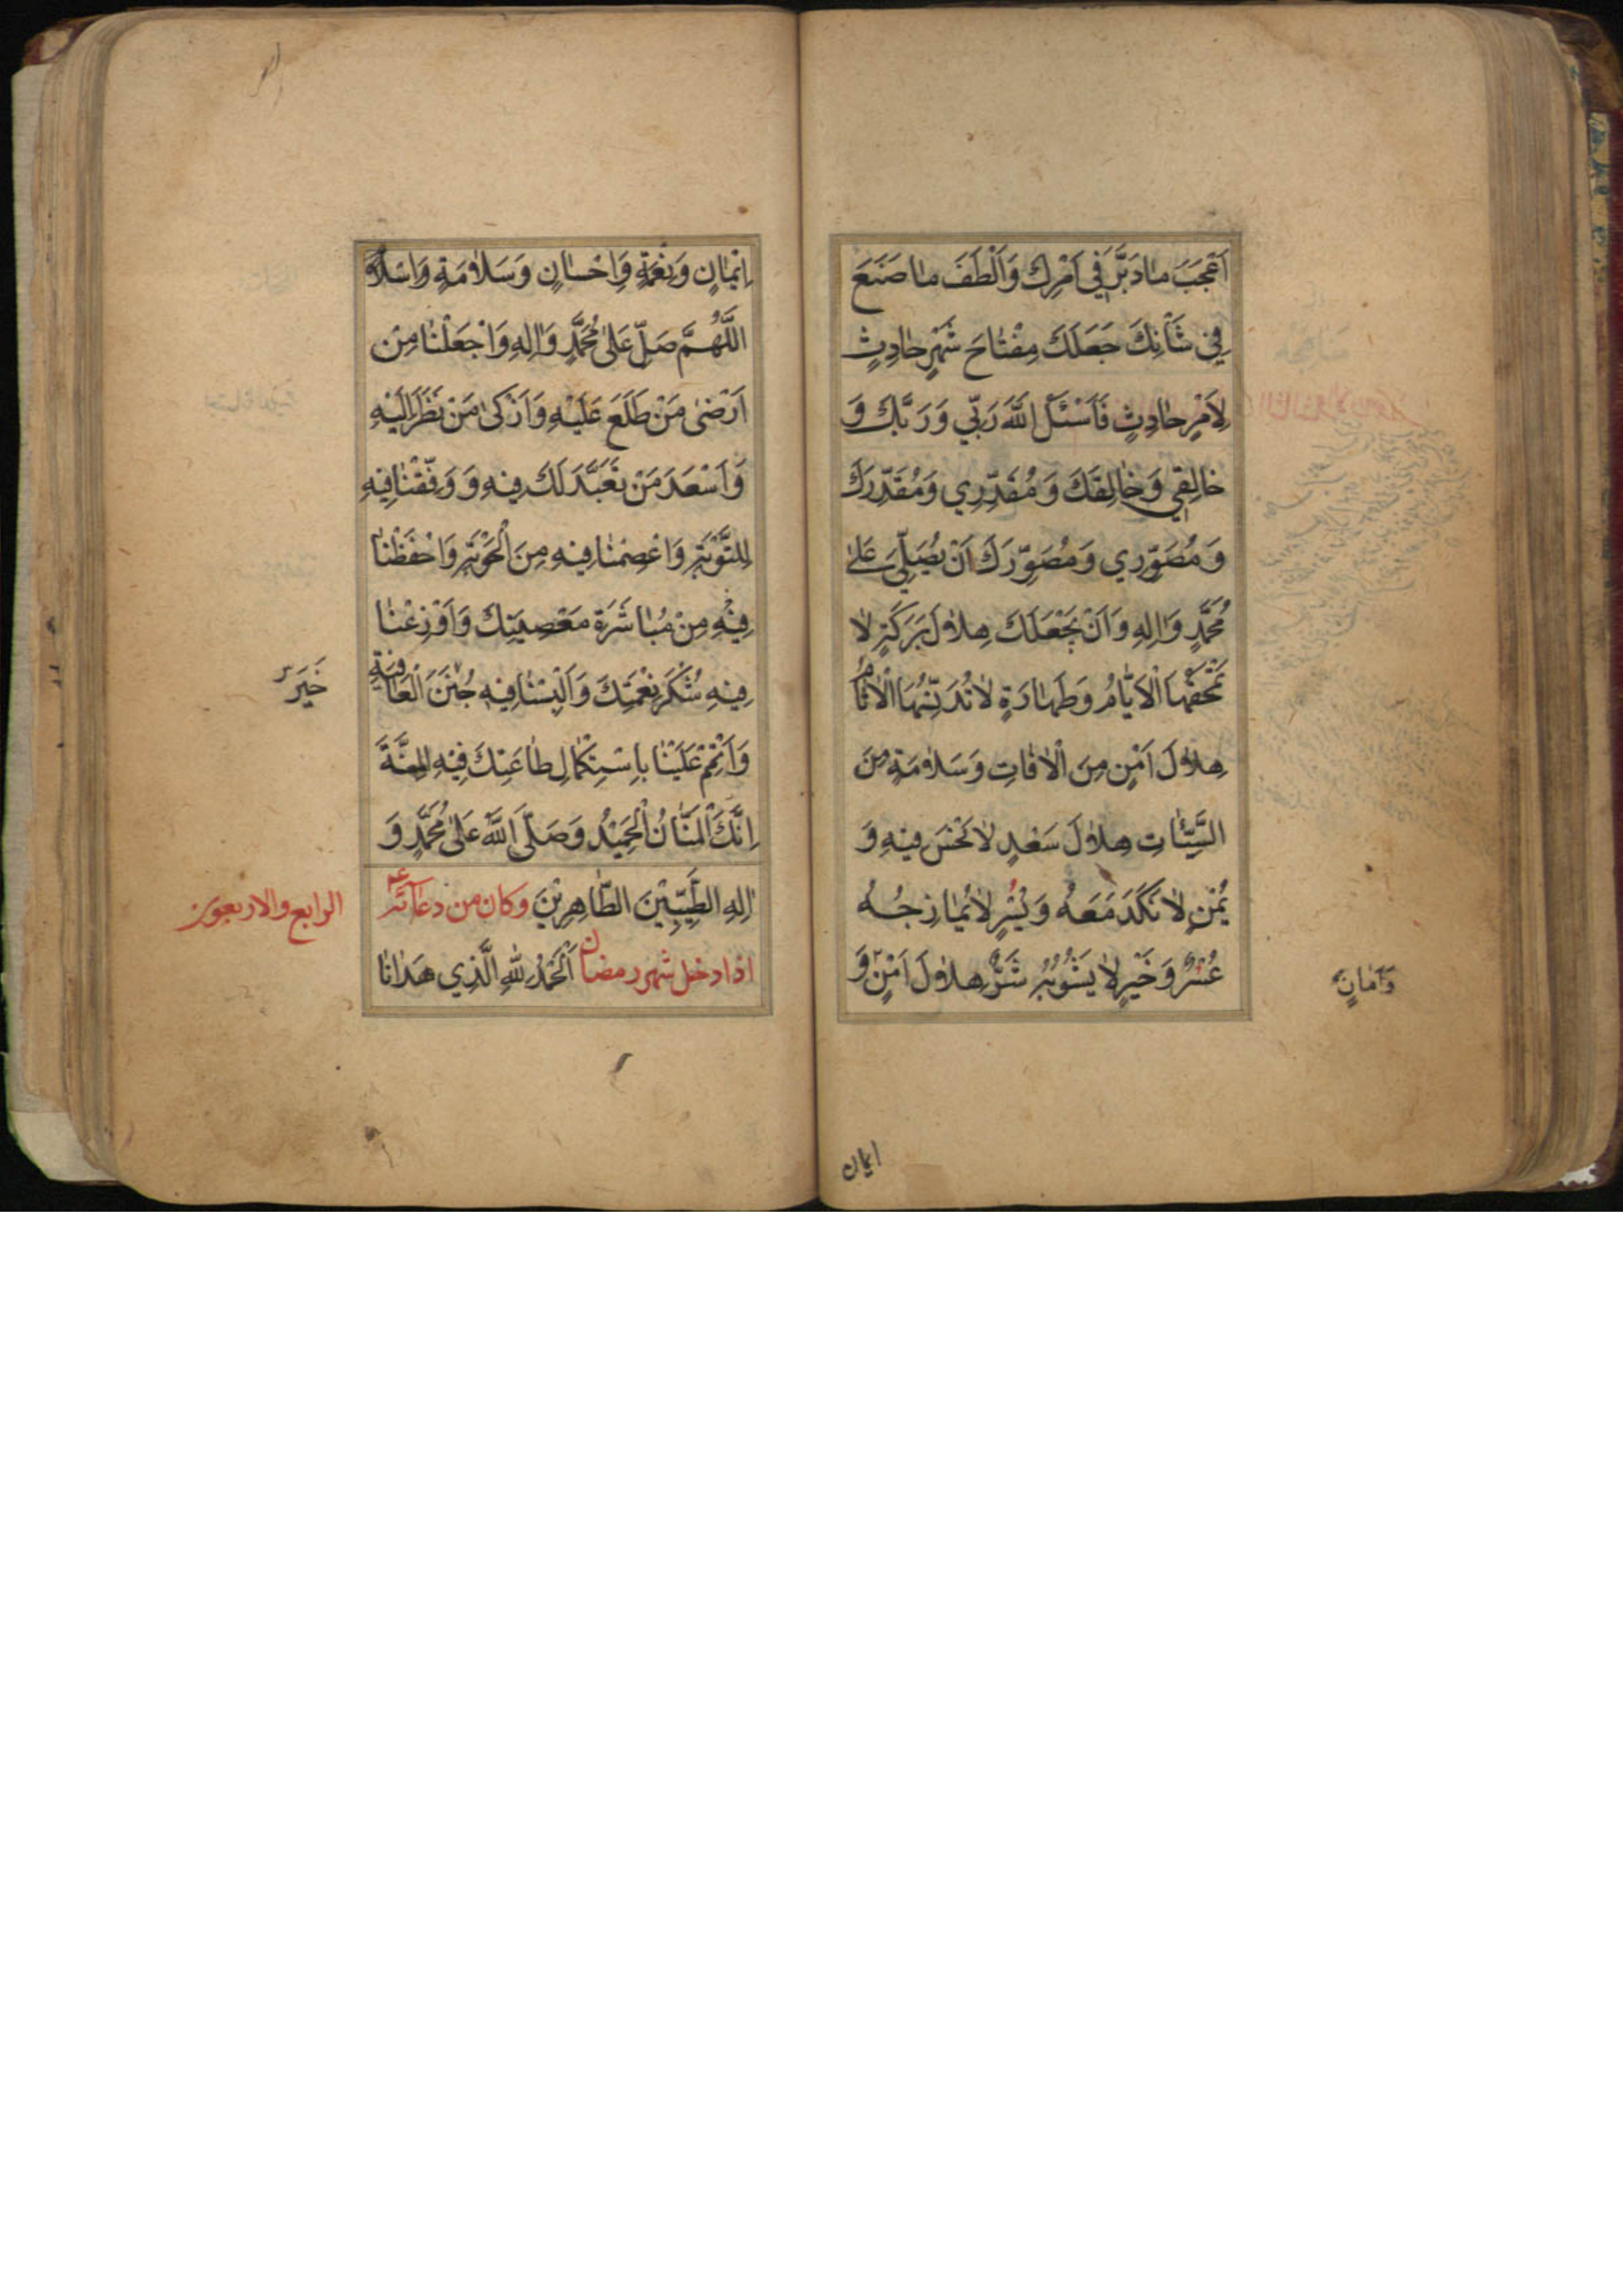 اَعْجَبَ مٰا دَبَّرَ فِي اَمْرِكَ وَاَلْطَفَ مٰا صَنَعَ
فِي شَأْنِكَ جَعَلَكَ مِفْتٰاحَ شَهْرٍ حٰادِثٍ
لِاَمْرٍ حٰادِثٍ فَاَسْئَلُ اللّٰهَ رَبّي وَرَبَّكَ وَ
خٰالِقِي وَخٰالِقَكَ وَمُقَدِّرِي وَمُقَدِّرَكَ
وَمُصَوِّرِي وَمُصَوِّرَكَ اَنْ يُصَلِّيَ عَلىٰ
مُحَمَّدٍ وَاٰلِهِ وَاَنْ يَجْعَلَكَ هِلاٰلَ بَرَكَةٍ لاٰ
تَمْحَقُهَا الْاَيّٰامُ وَطَهٰارَةٍ لاٰ تُدَنِّسُهَا الْاٰثٰامُ
هِلاٰلَ اَمْنٍ مِنَ الْاٰفٰاتِ وَسَلاٰمَةٍ مِنَ
السَّيِّئٰاتِ هِلاٰلَ سَعْدٍ لاٰ نَحْسَ فِيهِ وَ
يُمْنٍ لاٰ نَكَدَ مَعَهُ وَيُسْرٍ لاٰ يُمٰازِجُهُ
عُسْرٌ وَخَيْرٍ لاٰ يَشُوبُهُ شَرٌّ هِلاٰلَ اَمْنٍ وَ
وَاَمٰانٍ
ايمان
اِيْمٰانٍ وَنِعْمَةٍ وَاِحْسٰانٍ وَسَلاٰمَةٍ وَاِسْلاٰمٍ
اَللّٰهُمَّ صَلِّ عَلىٰ مُحَمَّدٍ وَاٰلِهِ وَاجْعَلْنٰا مِنْ
اَرْضىٰ مَنْ طَلَعَ عَلَيْهِ وَاَزْكىٰ مَنْ نَظَرَ اِلَيْهِ
وَاَسْعَدَ مَنْ تَعَبَّدَ لَكَ فِيهِ وَوَفِّقْنٰا فِيهِ
لِلتَّوْبَةِ وَاعْصِمْنٰا فِيهِ مِنَ الْحَوْبَةِ وَاحْفَظْنٰا
فِيْهِ مِنْ مُبٰاشَرَةِ مَعْصِيَتِكَ وَاَوْزِعْنٰا
فِيهِ شُكْرَ نِعْمَتِكَ وَاَلْبِسْنٰا فِيهِ جُنَنَ الْعٰافِيَةِ
خَيَر
وَاَتْمِمْ عَلَيْنٰا بِاسْتِكْمٰالِ طٰاعَتِكَ فِيْهِ الْمِنَّةَ
اِنَّكَ الْمَنّٰانُ الْحَمِيْدُ وَصَلَّى اللّٰهُ عَلىٰ مُحَمَّدٍ وَ
اٰلِهِ الطَّيِّبِيْنَ الطّٰاهِرِيْنَ وكان من دعائه ع
الرابع والاربعون
اذا دخل شهر رمضان اَلْحَمْدُ لِلّٰهِ الَّذِي هَدٰانٰا